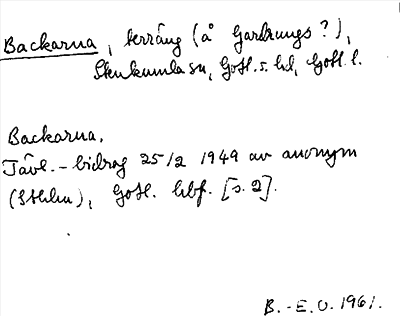 Backarna, terräng (å Gardrungs?),
Stenkumla sn, Gotl. s. hd, Gotl. l.
Backarna.
Tävl.-bidrag 25/2 1949 av anonym
(Sthlm), Gotl. hbf. [s. 2].
B.-E.O. 1961.